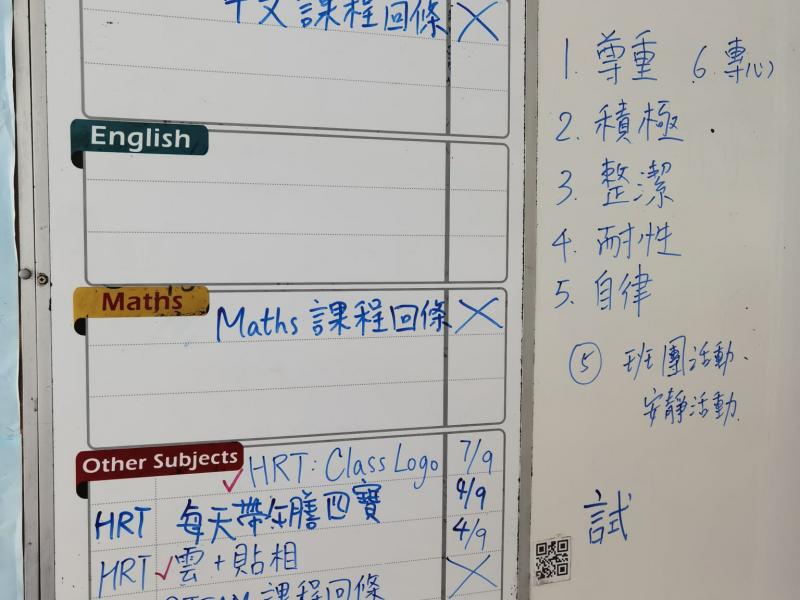 中文課程回條 ×
English
Maths
Maths 課程回條 ×
Other Subjects
HRT: Class Logo 7/9
HRT 每天帶午膳四寶 4/9
4/9
HRT 雲+貼相
STEAM 課程回條 ×
1. 尊重 6. 專心
2. 積極
3. 整潔
4. 耐性
5. 自律
⑤ 班團活動、
安靜活動
試